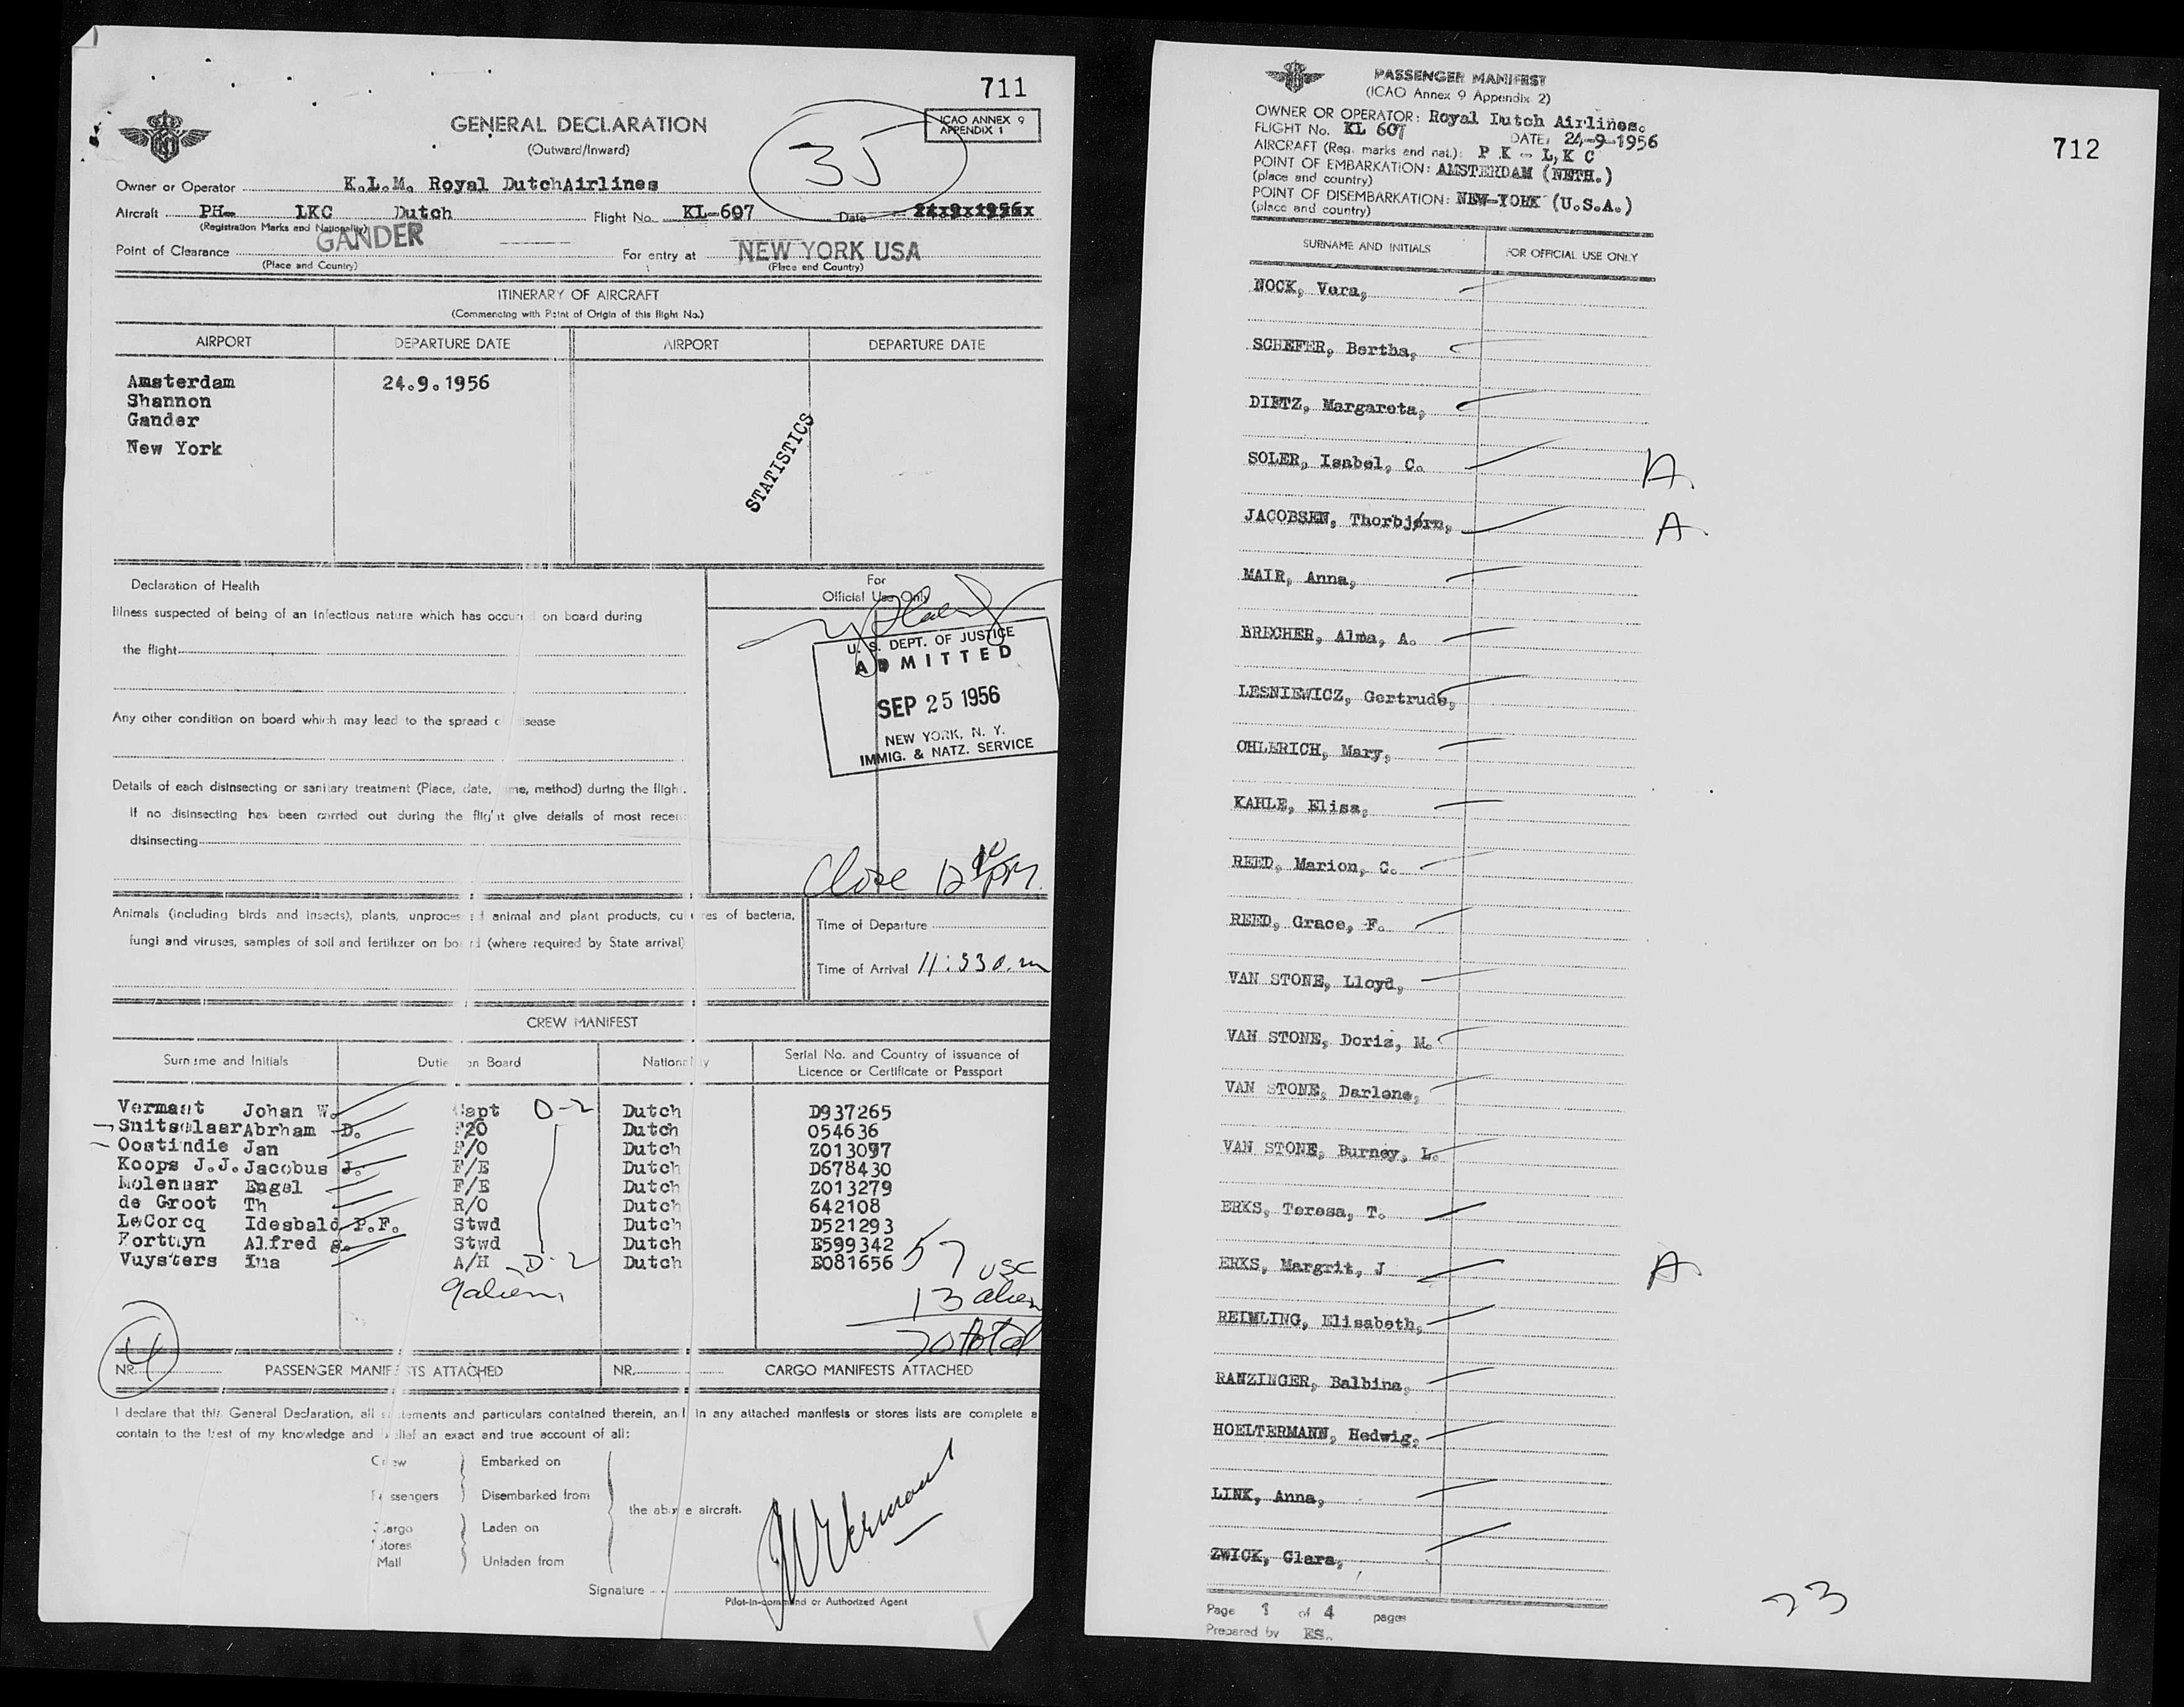 711
GENERAL DECLARATION
(Outward/Inward)
ICAO ANNEX 9
APPENDIX 1
35
Owner or Operator K.L.M. Royal DutchAirlines
Aircraft PH- LKC Dutch Flight No. KL-607 Date 24x9x1956x
(Registration Marks and Nationality)
Point of Clearance GANDER For entry at NEW YORK USA
(Place and Country) (Place and Country)
ITINERARY OF AIRCRAFT
(Commencing with Point of Origin of this flight No.)
AIRPORT DEPARTURE DATE AIRPORT DEPARTURE DATE
Amsterdam 24.9.1956
Shannon
Gander
New York
STATISTICS
Declaration of Health
Illness suspected of being of an infectious nature which has occured on board during
the flight
Any other condition on board which may lead to the spread of disease
Details of each disinsecting or sanitary treatment (Place, date, time, method) during the flight.
If no disinsecting has been carried out during the flight give details of most recent
disinsecting
For
Official Use Only
U. S. DEPT. OF JUSTICE
ADMITTED
SEP 25 1956
NEW YORK, N. Y.
IMMIG. & NATZ. SERVICE
Close 12 10 PM.
Animals (including birds and insects), plants, unprocessed animal and plant products, cultures of bacteria,
fungi and viruses, samples of soil and fertilizer on board (where required by State arrival)
Time of Departure
Time of Arrival 11:33 a.m
CREW MANIFEST
Surname and Initials Duties on Board Nationality Serial No. and Country of issuance of
Licence or Certificate or Passport
Vermaat Johan W. Capt D-2 Dutch D937265
Snitselaar Abrham D. F20 Dutch 054636
Oostindie Jan F/O Dutch Z013097
Koops J.J. Jacobus J. F/E Dutch D678430
Molenaar Engel F/E Dutch Z013279
de Groot Th R/O Dutch 642108
LeCorcq Idesbald P.F. Stwd Dutch D521293
Fortuyn Alfred g. Stwd Dutch E599342
Vuysters Ina A/H D-2 Dutch E081656
9 aliens
57 USC
13 alien
70 total
4
NR. PASSENGER MANIFESTS ATTACHED NR. CARGO MANIFESTS ATTACHED
I declare that this General Declaration, all statements and particulars contained therein, and in any attached manifests or stores lists are complete a
contain to the best of my knowledge and belief an exact and true account of all:
Crew Embarked on
Passengers Disembarked from
the above aircraft.
Cargo Laden on
Stores
Mail Unladen from
Signature
Pilot-in-command or Authorized Agent
712
PASSENGER MANIFEST
(ICAO Annex 9 Appendix 2)
OWNER OR OPERATOR: Royal Dutch Airlines.
FLIGHT No. KL 607 DATE: 24-9-1956
AIRCRAFT (Reg. marks and nat.): P K - L,K C
POINT OF EMBARKATION: AMSTERDAM (NETH.)
(place and country)
POINT OF DISEMBARKATION: NEW-YORK (U.S.A.)
(place and country)
SURNAME AND INITIALS FOR OFFICIAL USE ONLY
NOCK, Vera,
SCHEFER, Bertha,
DIETZ, Margareta,
SOLER, Isabel, C. A
JACOBSEN, Thorbjørn, A
MAIR, Anna,
BRECHER, Alma, A.
LESNIEWICZ, Gertrude,
OHLERICH, Mary,
KAHLE, Elisa,
REED, Marion, C.
REED, Grace, F.
VAN STONE, Lloyd,
VAN STONE, Doris, M.
VAN STONE, Darlene,
VAN STONE, Burney, L.
ERKS, Teresa, T.
ERKS, Margrit, J A
REIMLING, Elisabeth,
RANZINGER, Balbina,
HOELTERMANN, Hedwig,
LINK, Anna,
ZWICK, Clara,
23
Page 1 of 4 pages
Prepared by ES.